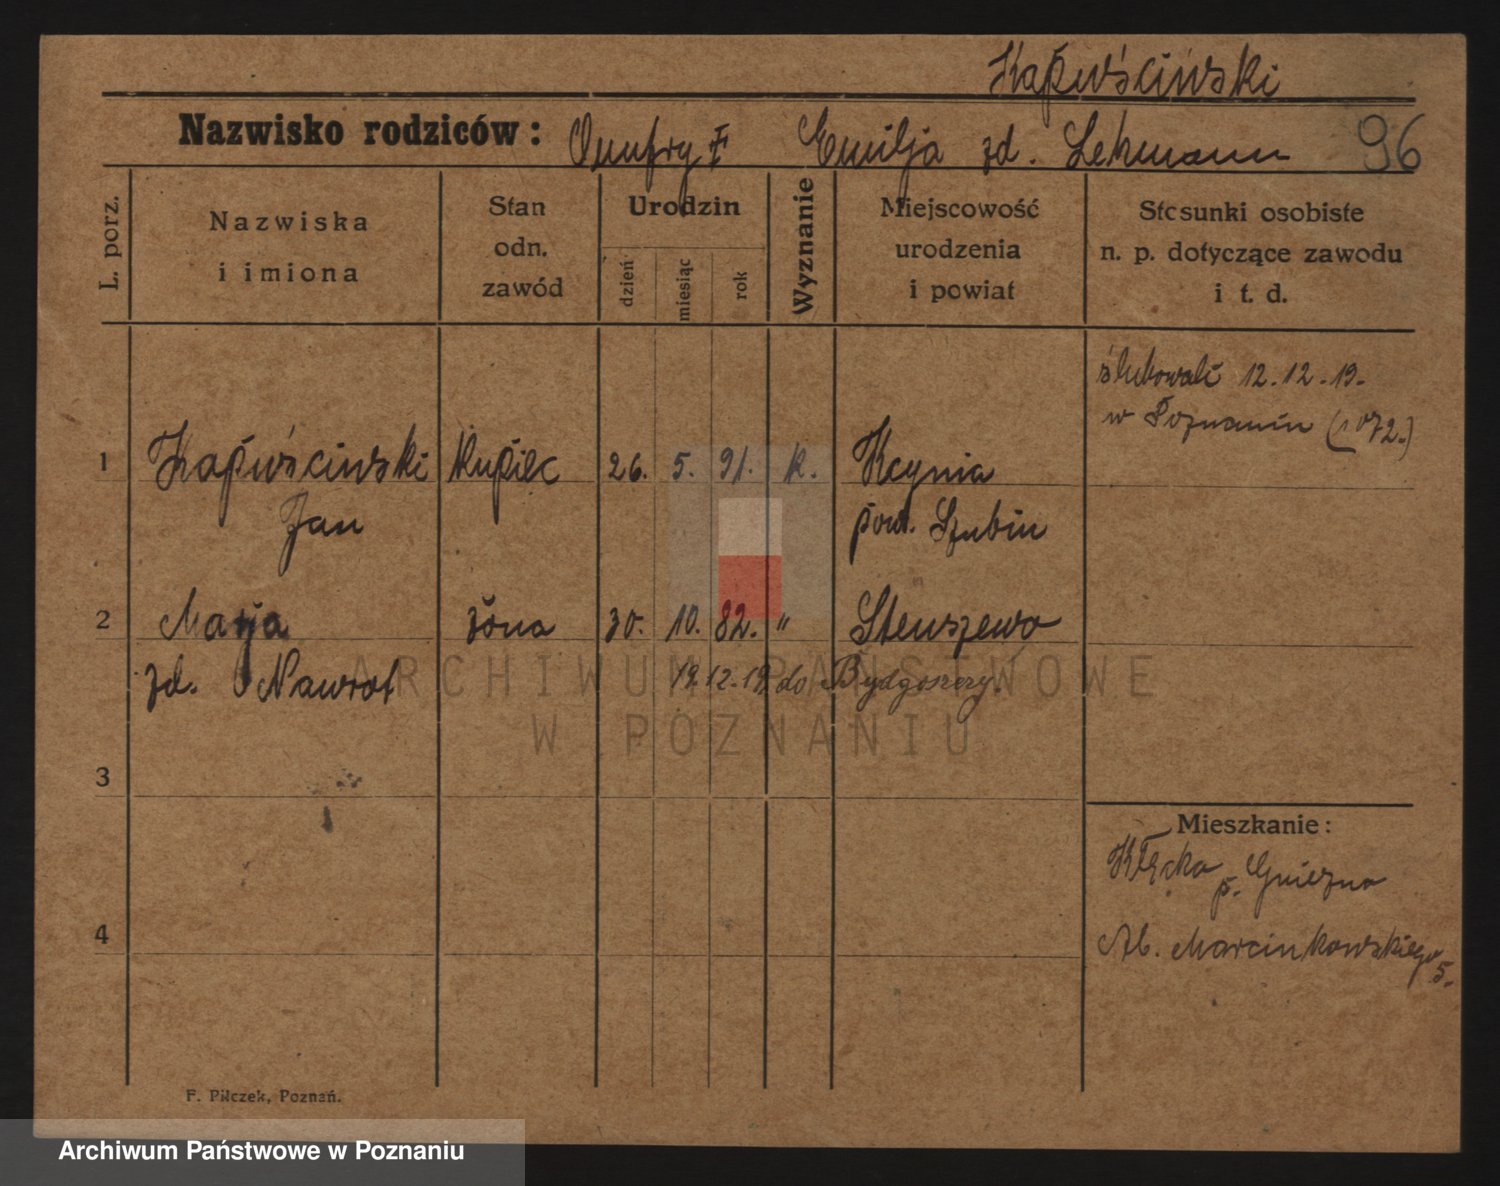 Kapuściński
Nazwisko rodziców: Onufry † Emilja zd. Lehmann 96
L. porz.
Nazwiska
i imiona
Stan
odn.
zawód
Urodzin
dzień
miesiąc
rok
Wyznanie
Miejscowość
urodzenia
i powiat
Stosunki osobiste
n. p. dotyczące zawodu
i t. d.
ślubowali 12.12.19.
w Poznaniu (1072.)
1 Kapuściński Kupiec 26. 5. 91. k. Kcynia
Jan pow. Szubin
2 Marja żona 30. 10. 82. " Stenszewo
zd. Nawrot 19.12.19 do Bydgoszczy.
ARCHIWUM PAŃSTWOWE
W POZNANIU
3
Mieszkanie:
Kłecko p. Gniezno
4
Al. Marcinkowskiego 5.
F. Pilczek, Poznań.
Archiwum Państwowe w Poznaniu